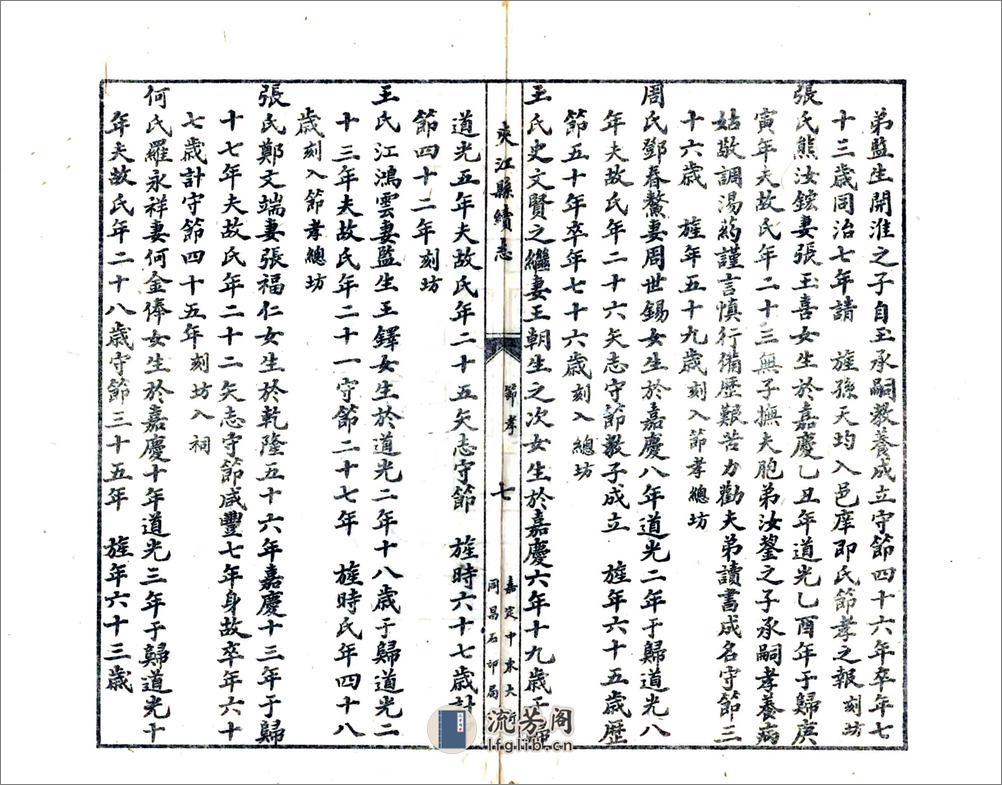 弟監生開淮之子自玉承嗣教養成立守節四十六年卒年七
十三歲同治七年請　旌孫天均入邑庠即氏節孝之報刻坊
張氏熊汝鋐妻張玉喜女生於嘉慶乙丑年道光乙酉年于歸庚
寅年夫故氏年二十三無子撫夫胞弟汝鋆之子承嗣孝養病
姑敬調湯葯謹言慎行備歷艱苦力勸夫弟讀書成名守節三
十六歲　旌年五十九歲刻入節孝總坊
周氏鄧春鰲妻周世錫女生於嘉慶八年道光二年于歸道光八
年夫故氏年二十六矢志守節教子成立　旌年六十五歲歷
節五十年卒年七十六歲刻入總坊
王氏史文賢之繼妻王朝生之次女生於嘉慶六年十九歲于歸
夾江縣續志
節孝
七
嘉定中水大
同昌石印局
道光五年夫故氏年二十五矢志守節　旌時六十七歲計
節四十二年刻坊
王氏江鴻雲妻監生王鐸女生於道光二年十八歲于歸道光二
十三年夫故氏年二十一守節二十七年　旌時氏年四十八
歲刻入節孝總坊
張氏鄭文端妻張福仁女生於乾隆五十六年嘉慶十三年于歸
十七年夫故氏年二十二矢志守節咸豐七年身故卒年六十
七歲計守節四十五年刻坊入祠
何氏羅永祥妻何金俸女生於嘉慶十年道光三年于歸道光十
年夫故氏年二十八歲守節三十五年　旌年六十三歲
流芳阁
lfglib.cn